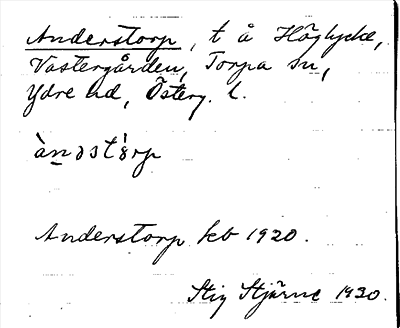 Anderstorp, t å Höglycke,
Västergården, Torpa sn,
Ydre hd, Österg. l.
ànəstórp
Anderstorp kb 1920.
Stig Stjärne 1930.